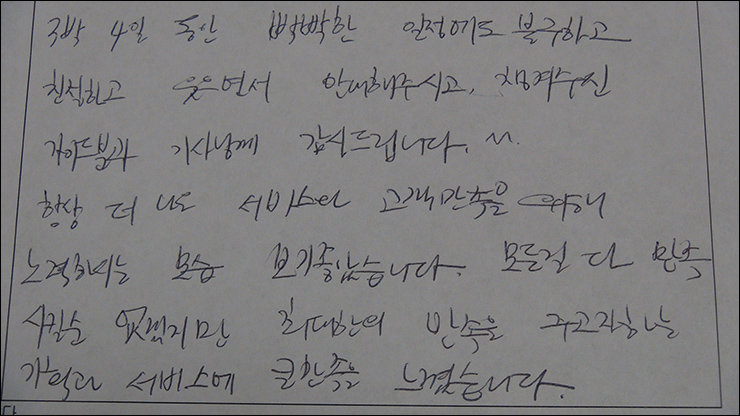 3박 4일 동안 빡빡한 일정에도 불구하고
친절하고 웃으면서 안내해주시고, 챙겨주신
가이드분과 기사님께 감사드립니다. ^^.
항상 더 나은 서비스와 고객만족을 위해
노력하시는 모습 보기좋았습니다. 모든걸 다 만족
시킬순 없겠지만 최대한의 만족을 주고자하는
가이드와 서비스에 큰만족을 느꼈습니다.
다